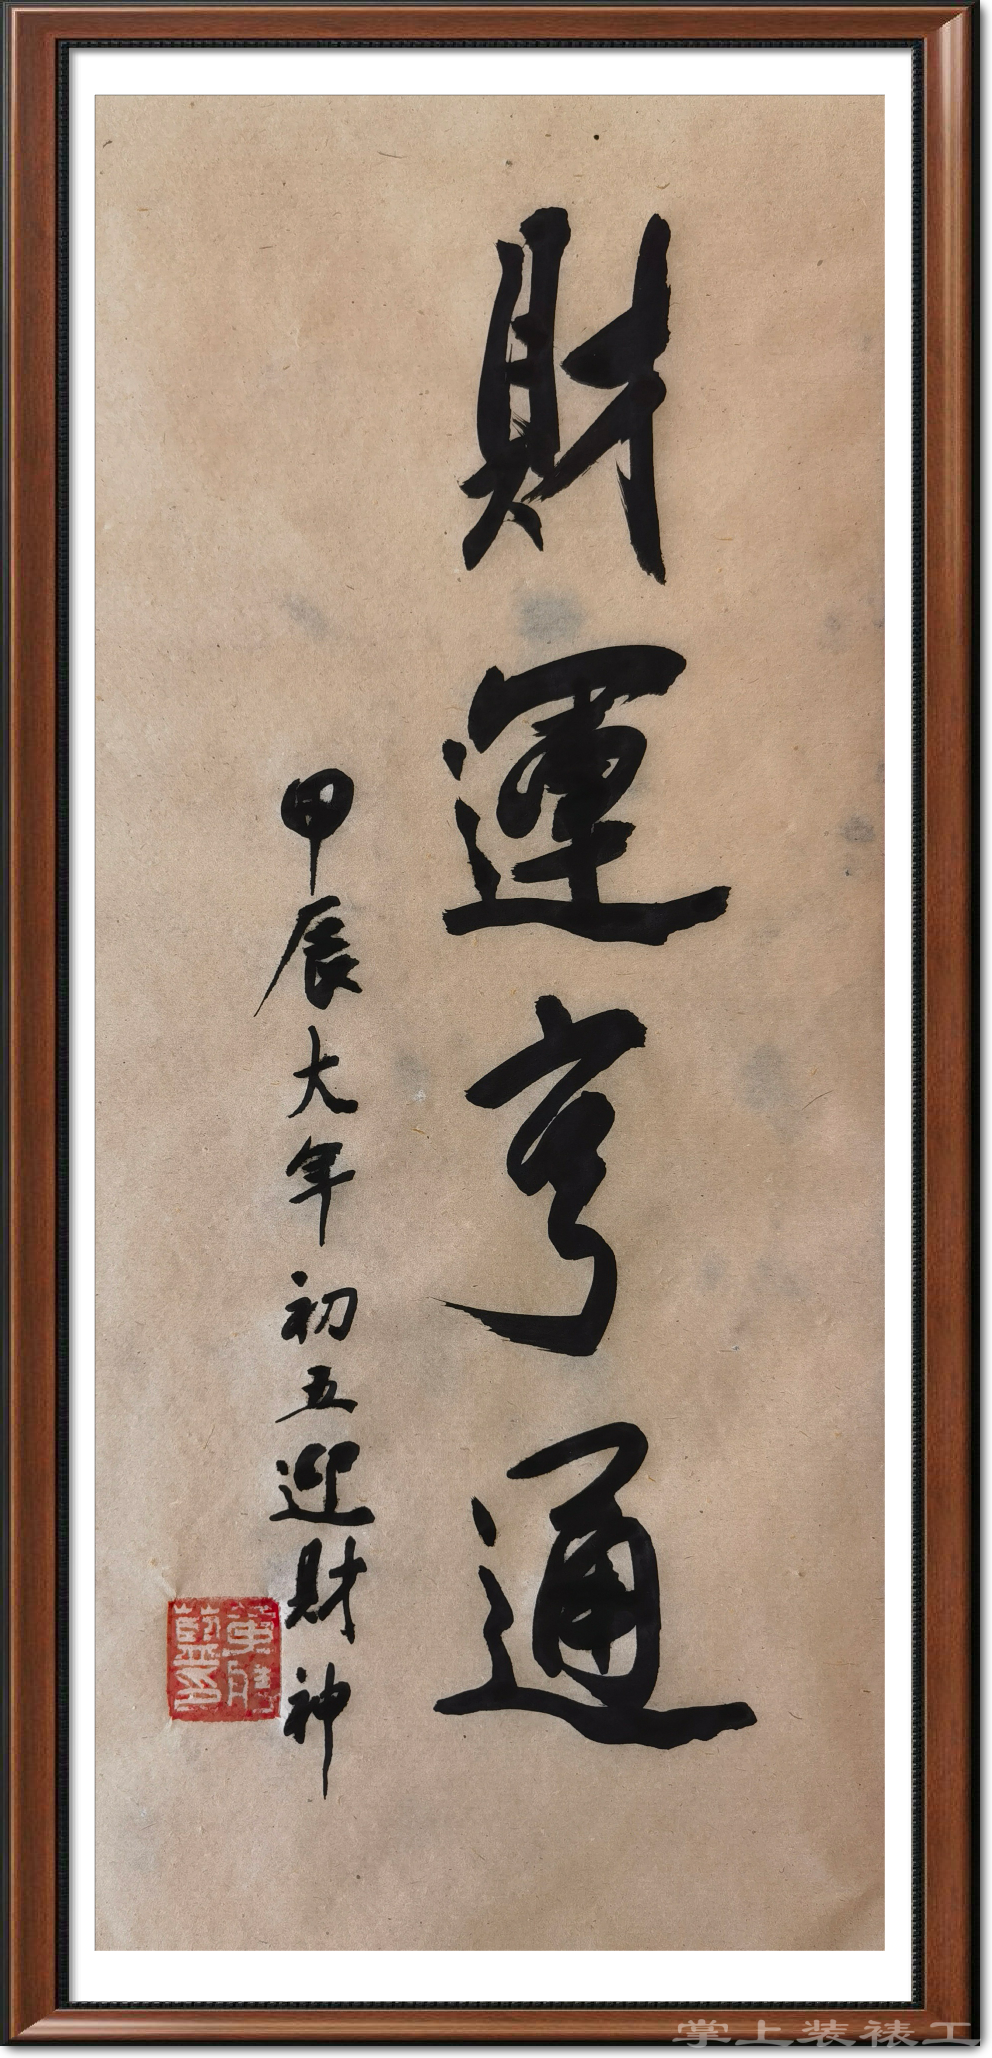 財運亨通
甲辰大年初五迎財神
掌上装裱工